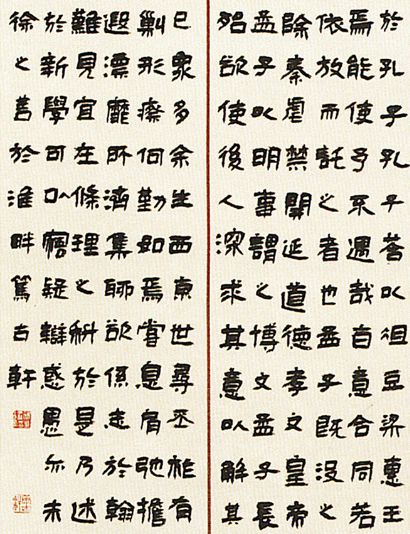 於孔子孔子荅以俎豆梁惠王
焉能使予不遇哉旨意合同若
依放而託之者也孟子既沒之
除秦虐禁開延道德孝文皇帝
孟子以明事謂之博文孟子長
殆欲使後人深求其意以解其
已眾多余生西京世尋丕祚有
勦形瘵何勤如焉嘗息肩弛擔
遐漂靡所濟集聊欲係志於翰
難見宜在條理之科於是乃述
於新學可以寤疑辯惑愚亦未
徐之善於淮畔篤古軒